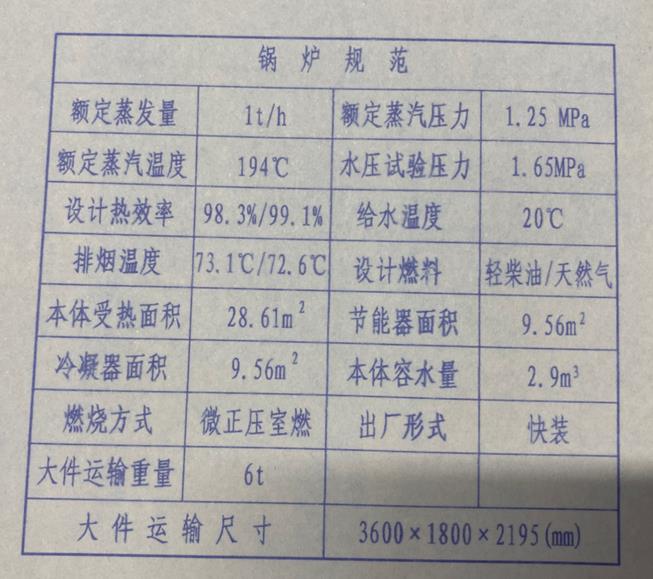 锅炉规范
额定蒸发量 1t/h 额定蒸汽压力 1.25 MPa
额定蒸汽温度 194℃ 水压试验压力 1.65MPa
设计热效率 98.3%/99.1% 给水温度 20℃
排烟温度 73.1℃/72.6℃ 设计燃料 轻柴油/天然气
本体受热面积 28.61m² 节能器面积 9.56m²
冷凝器面积 9.56m² 本体容水量 2.9m³
燃烧方式 微正压室燃 出厂形式 快装
大件运输重量 6t
大件运输尺寸 3600×1800×2195(mm)